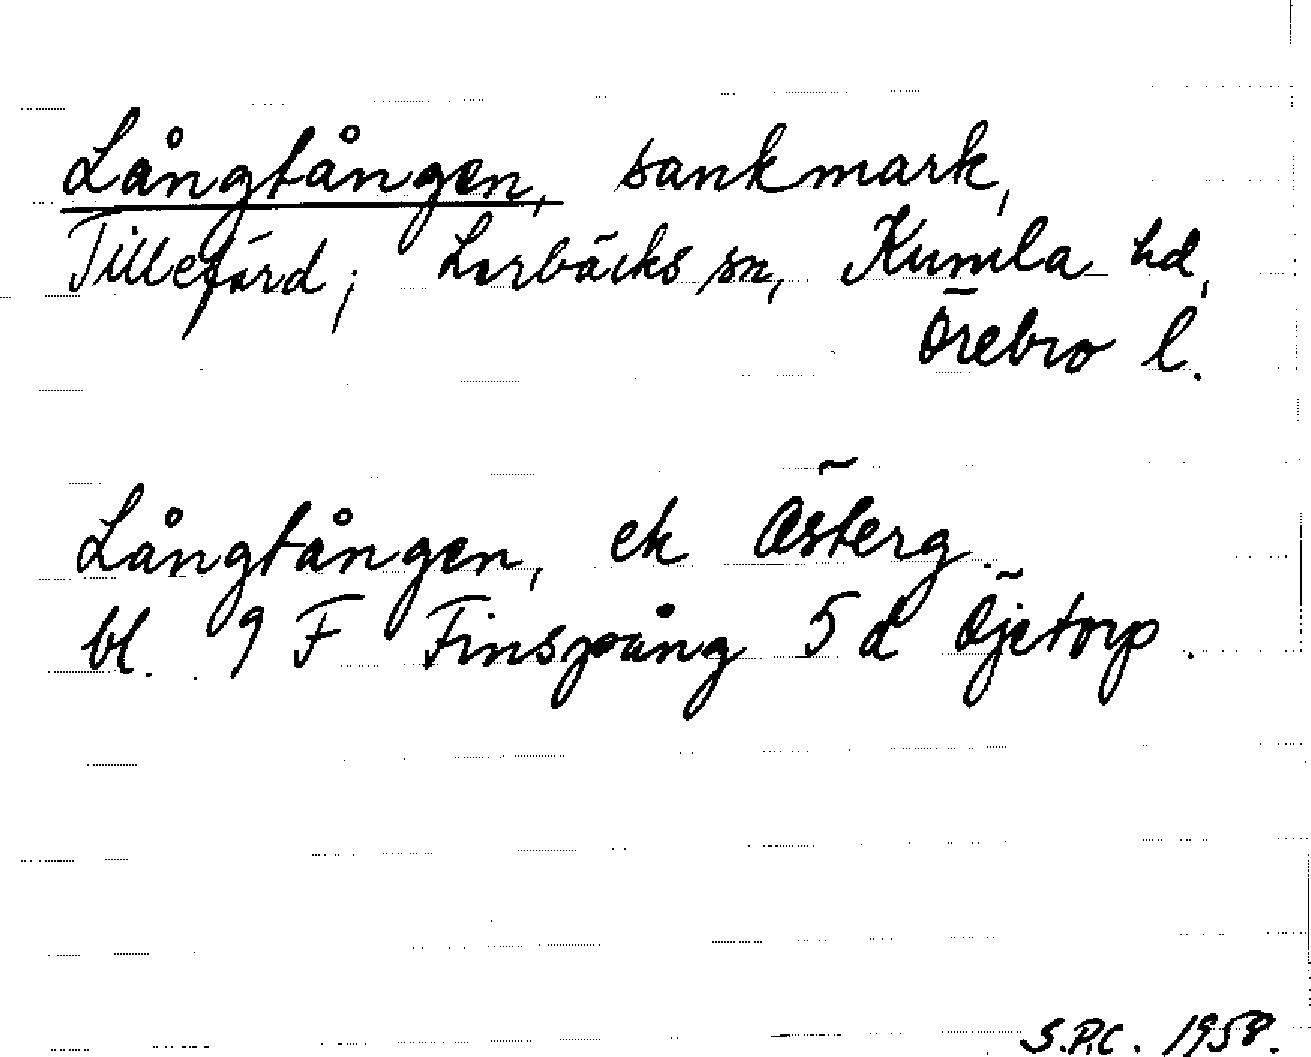 Långtången, sankmark,
Tillefärd, Lerbäcks sn, Kumla hd,
Örebro l.
Långtången, ek Österg.
bl. 9 F Finspång 5 d Öjetorp.
S.P.C. 1958.